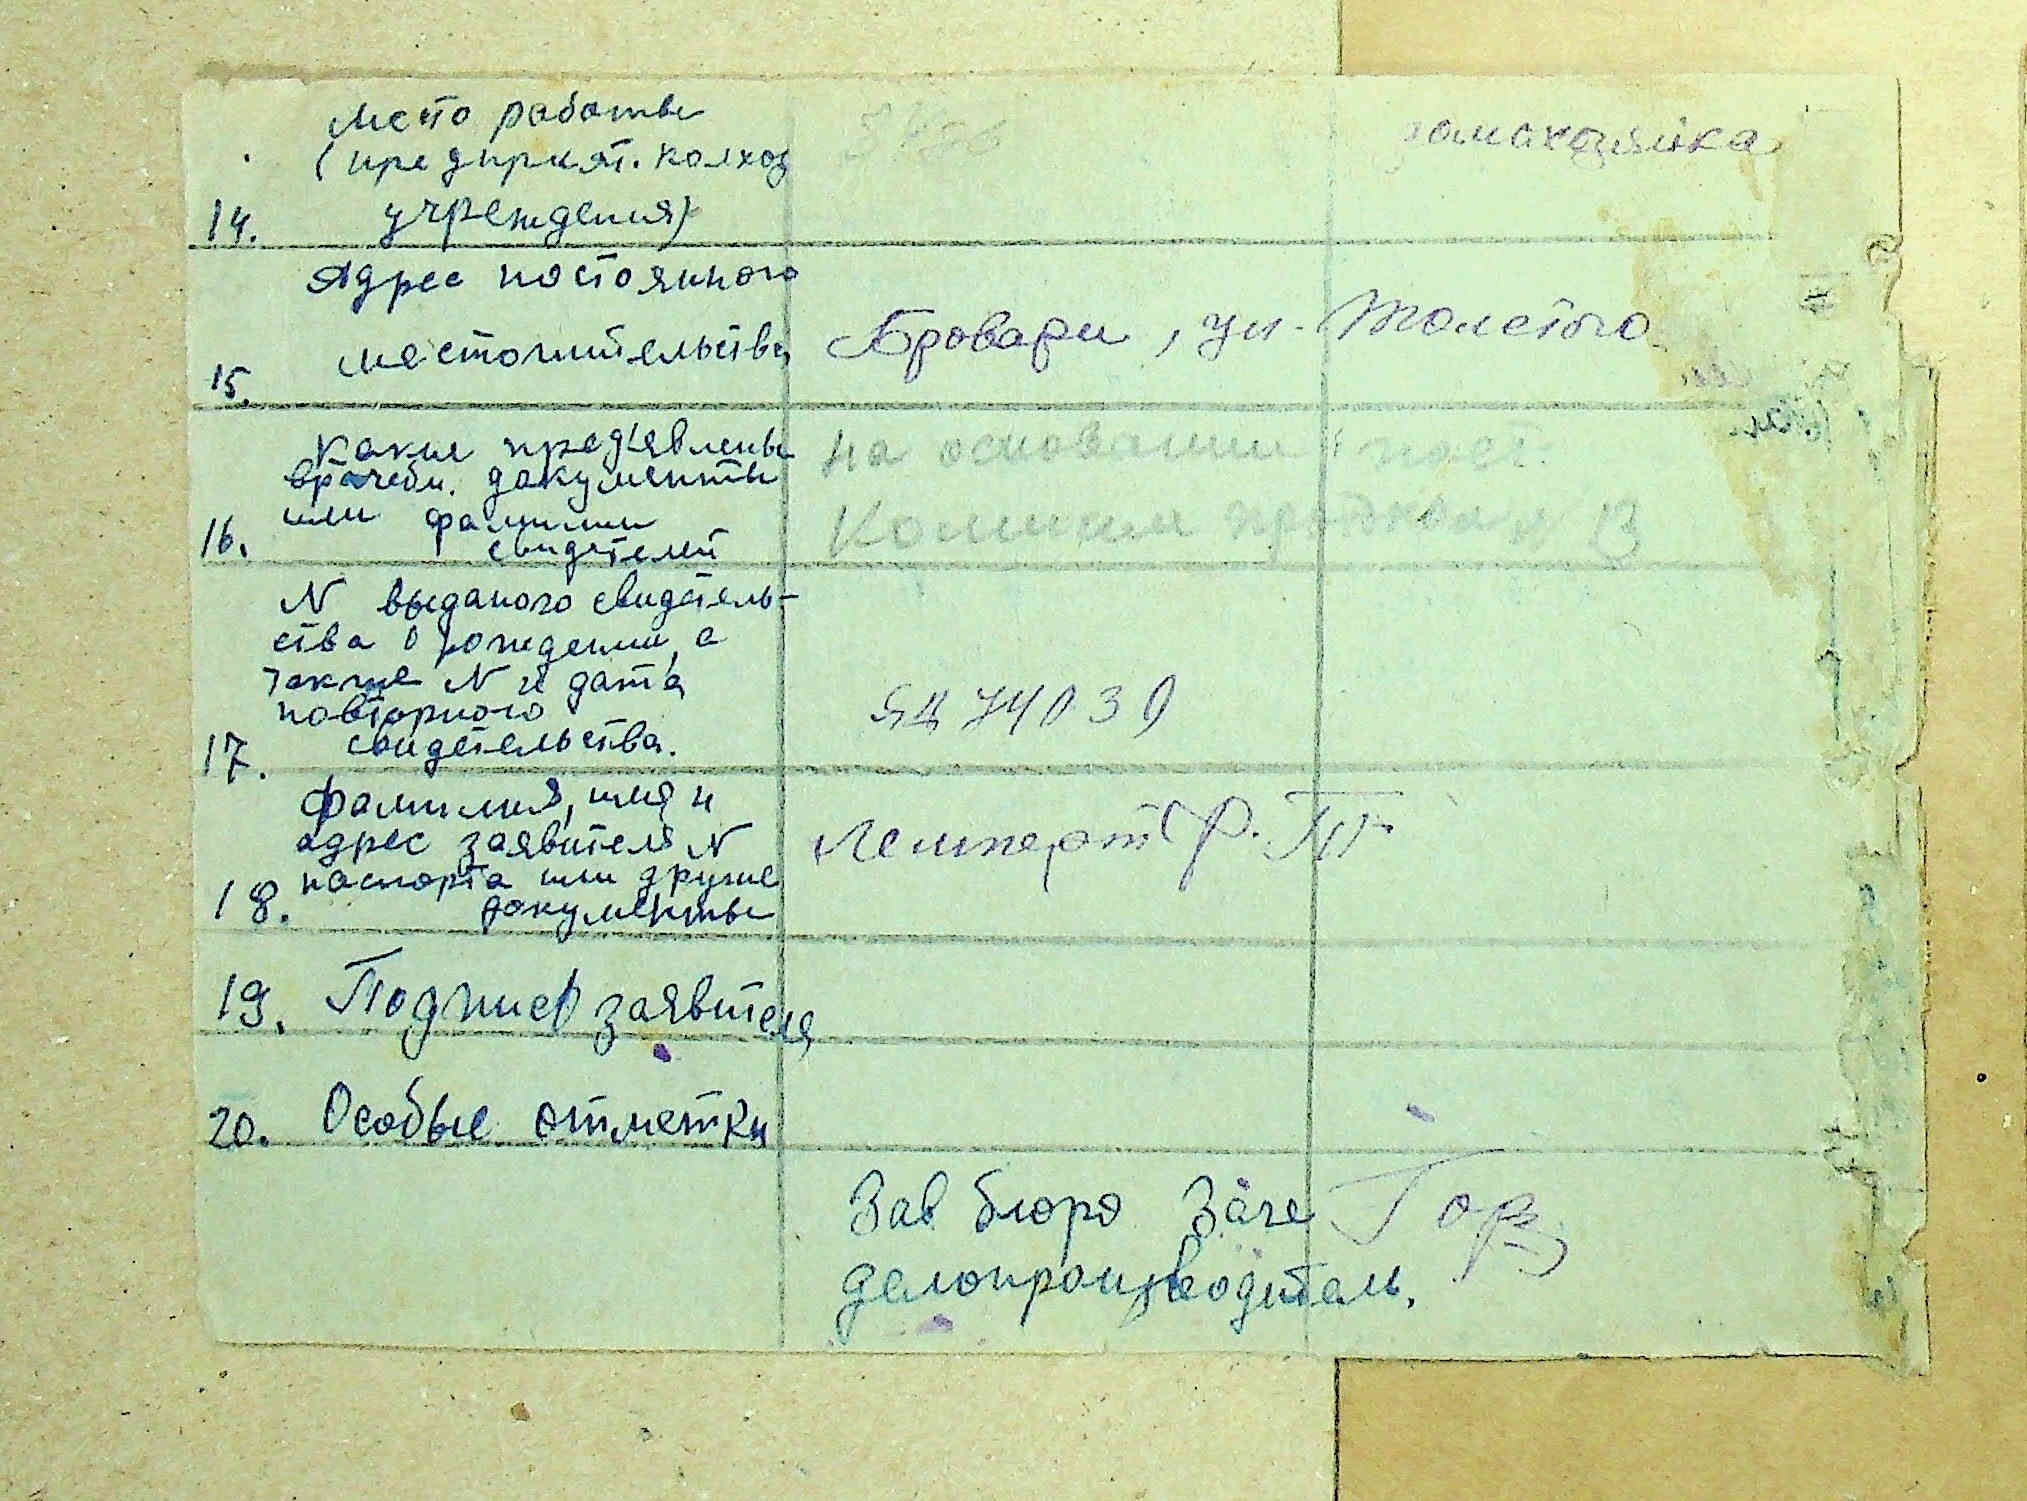 Место работы
(предприят. колхоз
14. учреждения)
домохозяйка
Адрес постоянного
15. местожительства
Бровари, ул. Толстого
Какие пред'явлены
врачебн. документы
или фамилии
16. свидетелей
на основании пост.
Комиссии № 13
N выданого свидетель-
ства о рождении, а
также N и дата
повторного
17. свидетельства.
ЯЦ 74039
Фамилия, имя и
адрес заявителя N
паспорта или другие
18. документы
Лемперт Р. П.
19. Подпись заявителя
20. Особые отметки
Зав бюро Загс Гор
делопроизводитель.